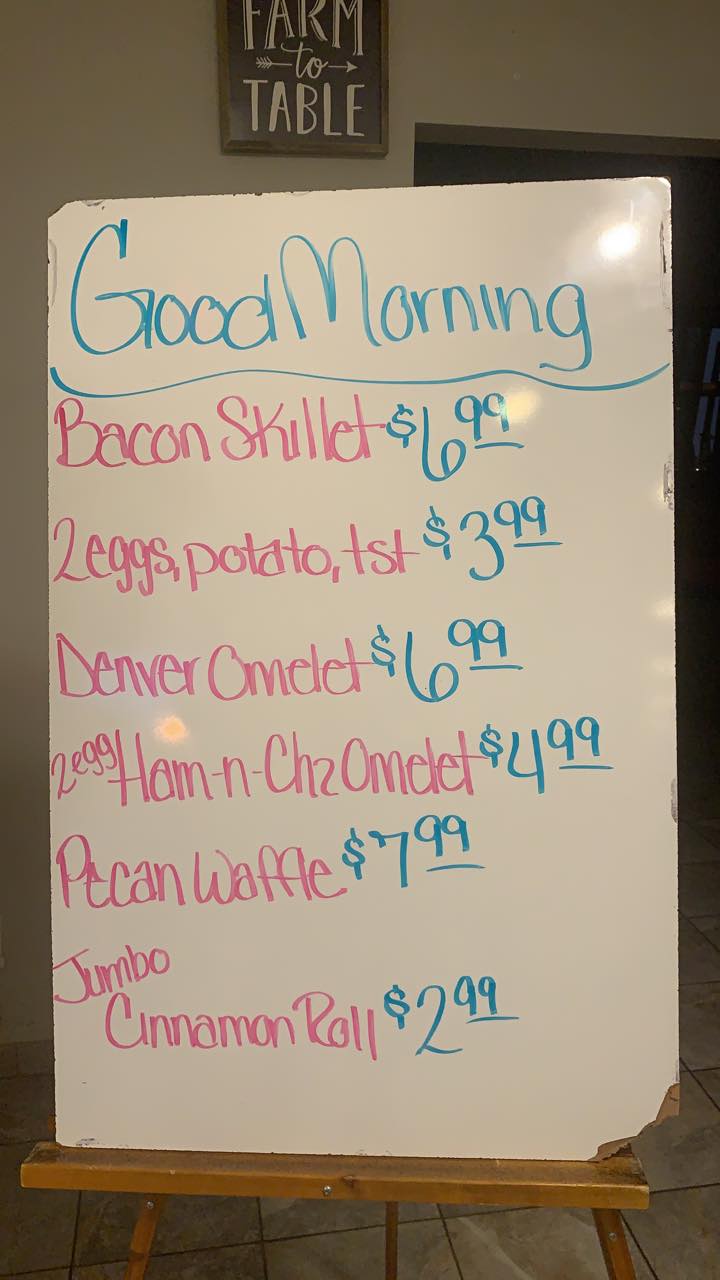 FARM
to
TABLE
Good Morning
Bacon Skillet $6.99
2eggs, potato, tst $3.99
Denver Omelet $6.99
2egg Ham-n-Chz Omelet $4.99
Pecan Waffle $7.99
Jumbo
Cinnamon Roll $2.99